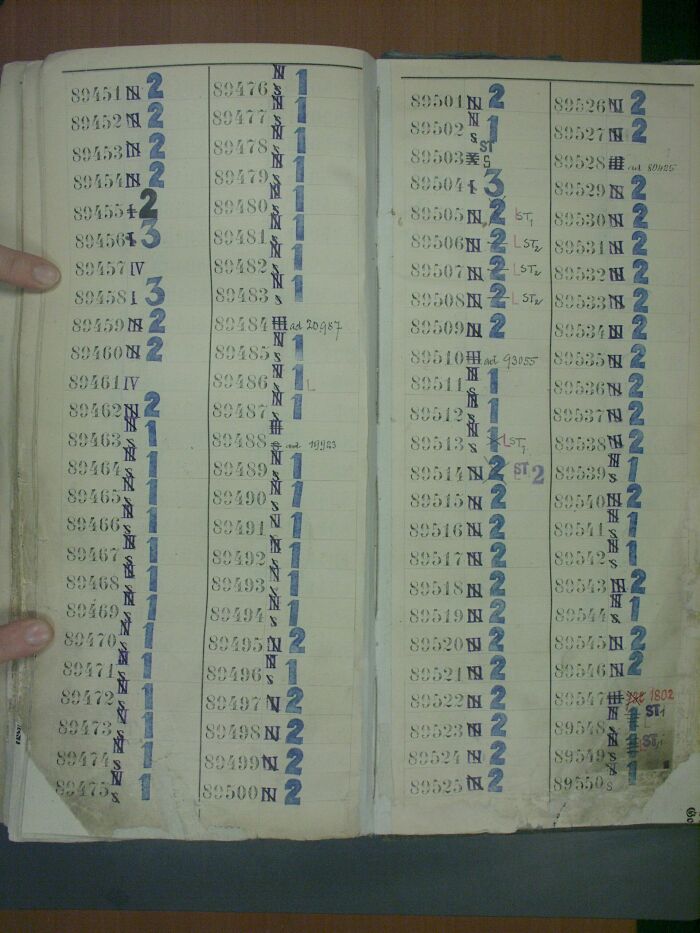 89451 N 2
89452 N 2
89453 N 2
89454 N 2
89455 I 2
89456 I 3
89457 IV
89458 I 3
89459 N 2
89460 N 2
89461 IV
89462 N 2
89463 N S 1
89464 N S 1
89465 N S 1
89466 N S 1
89467 N S 1
89468 N S 1
89469 N S 1
89470 N S 1
89471 N S 1
89472 N S 1
89473 N S 1
89474 N S 1
89475 N S 1
89476 N S 1
89477 N S 1
89478 N S 1
89479 N S 1
89480 N S 1
89481 N S 1
89482 N S 1
89483 N S 1
89484 ad 20987
89485 N S 1
89486 N S 1 L
89487 N S 1
89488 ad
89489 N S 1
89490 N S 1
89491 N S 1
89492 N S 1
89493 N S 1
89494 N S 1
89495 N 2
89496 N S 1
89497 N 2
89498 N 2
89499 N 2
89500 N 2
89501 N 2
89502 N S 1
89503 S ST
89504 I 3
89505 N 2 L ST1
89506 N 2 L ST2
89507 N 2 L ST2
89508 N 2 L ST2
89509 N 2
89510 ad 93055
89511 N S 1
89512 N S 1
89513 N S 1 L ST1
89514 N 2 ST 2
89515 N 2
89516 N 2
89517 N 2
89518 N 2
89519 N 2
89520 N 2
89521 N 2
89522 N 2
89523 N 2
89524 N 2
89525 N 2
89526 N 2
89527 N 2
89528 ad
89529 N 2
89530 N 2
89531 N 2
89532 N 2
89533 N 2
89534 N 2
89535 N 2
89536 N 2
89537 N 2
89538 N 2
89539 N S 1
89540 N 2
89541 N S 1
89542 N S 1
89543 N 2
89544 N S 1
89545 N 2
89546 N 2
89547 1802
89548 N S 1 ST1
89549 N S 1
89550 S 1